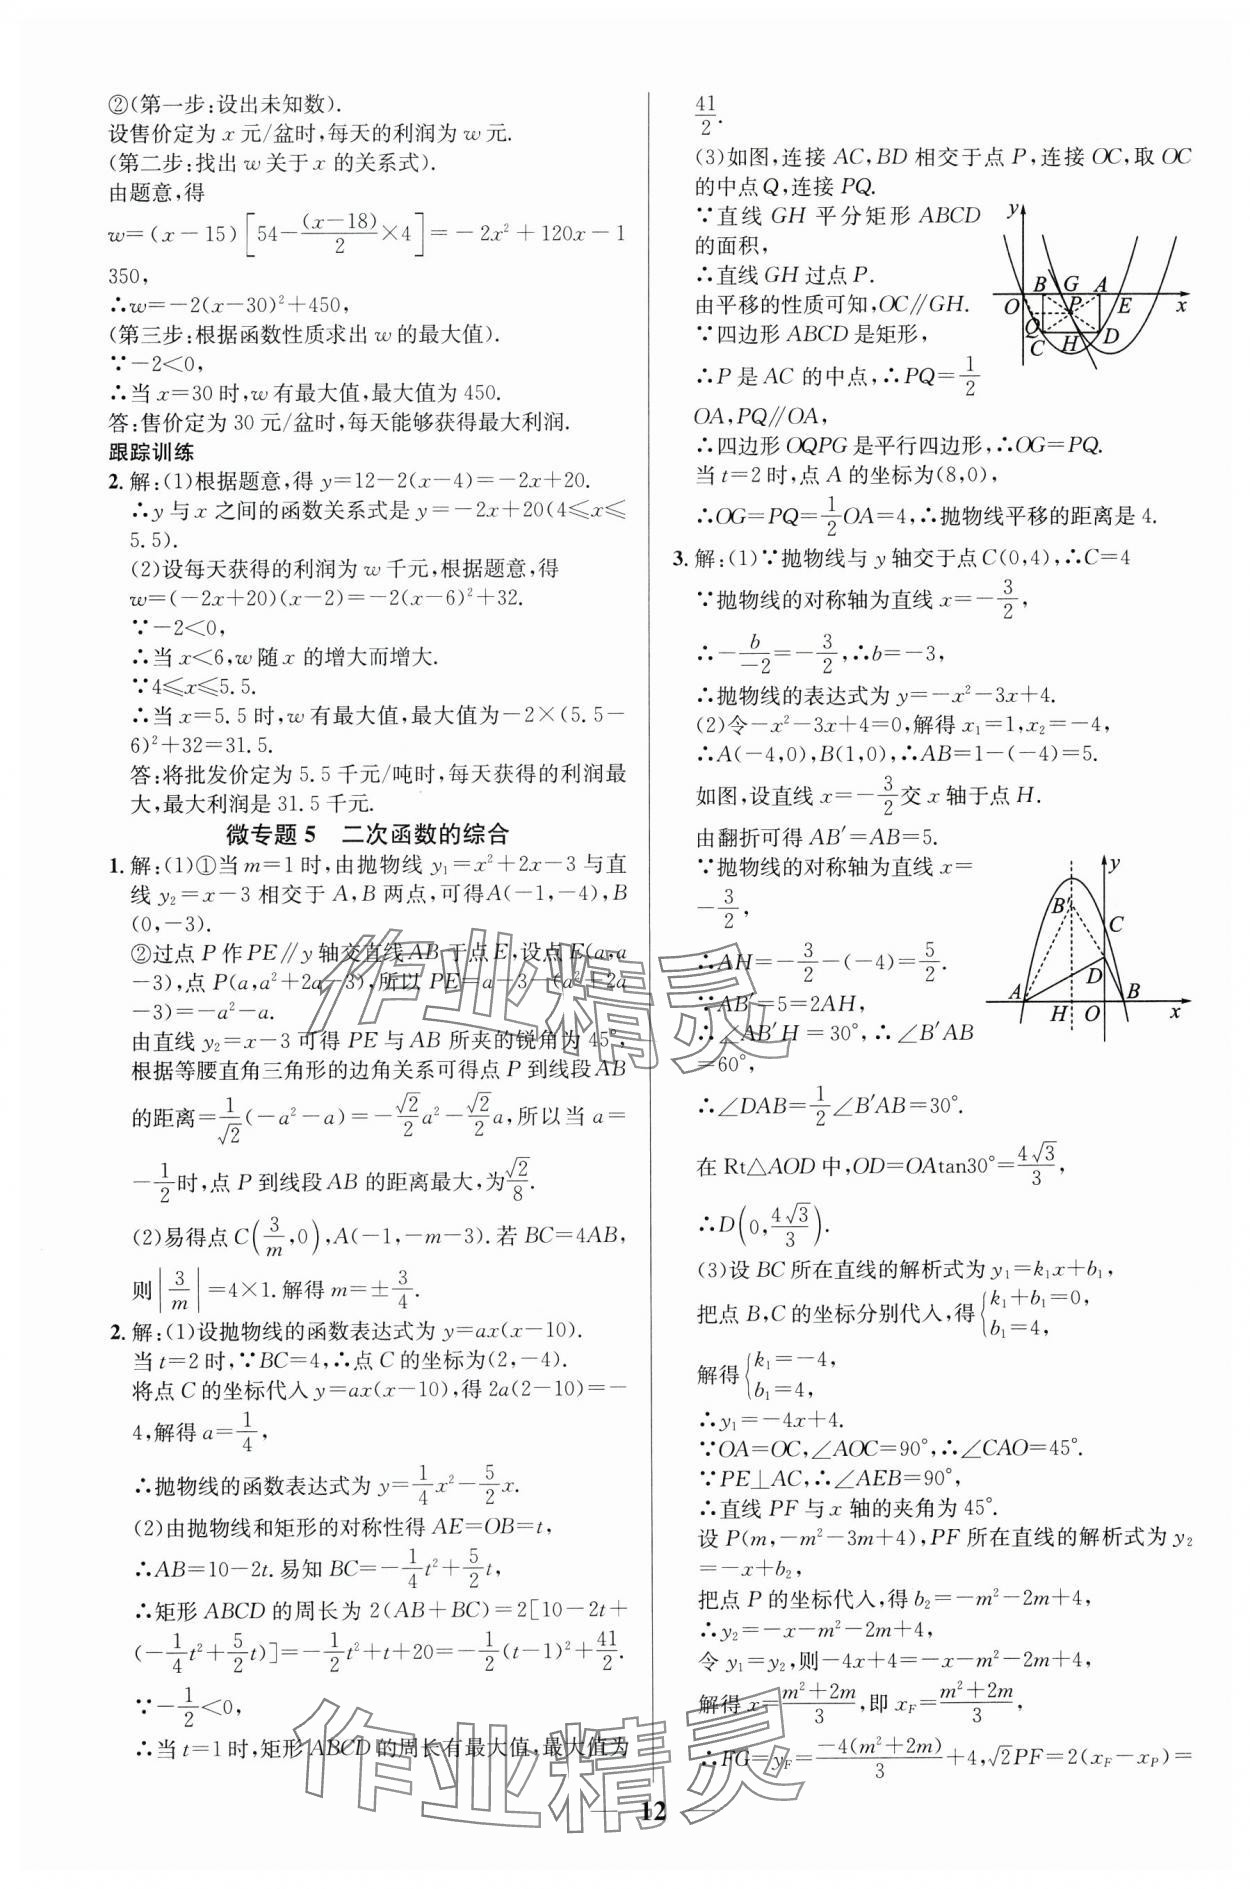 ②(第一步:设出未知数).
设售价定为 x 元/盆时,每天的利润为 w 元.
(第二步:找出 w 关于 x 的关系式).
由题意,得
w=(x-15)[54-(x-18)/2×4]=-2x²+120x-1
350,
∴w=-2(x-30)²+450,
(第三步:根据函数性质求出 w 的最大值).
∵-2<0,
∴当 x=30 时,w 有最大值,最大值为 450.
答:售价定为 30 元/盆时,每天能够获得最大利润.
跟踪训练
2.解:(1)根据题意,得 y=12-2(x-4)=-2x+20.
∴y 与 x 之间的函数关系式是 y=-2x+20(4≤x≤
5.5).
(2)设每天获得的利润为 w 千元,根据题意,得
w=(-2x+20)(x-2)=-2(x-6)²+32.
∵-2<0,
∴当 x<6,w 随 x 的增大而增大.
∵4≤x≤5.5.
∴当 x=5.5 时,w 有最大值,最大值为-2×(5.5-
6)²+32=31.5.
答:将批发价定为 5.5 千元/吨时,每天获得的利润最
大,最大利润是 31.5 千元.
微专题 5 二次函数的综合
1.解:(1)①当 m=1 时,由抛物线 y₁=x²+2x-3 与直
线 y₂=x-3 相交于 A,B 两点,可得A(-1,-4),B
(0,-3).
②过点 P 作 PE∥y 轴交直线 AB 于点 E,设点 E(a,a
-3),点 P(a,a²+2a-3),所以 PE=a-3-(a²+2a
-3)=-a²-a.
由直线 y₂=x-3 可得 PE 与 AB 所夹的锐角为 45°,
根据等腰直角三角形的边角关系可得点 P 到线段 AB
的距离=1/√2(-a²-a)=-√2/2a²-√2/2a,所以当 a=
-1/2时,点 P 到线段 AB 的距离最大,为√2/8.
(2)易得点 C(3/m,0),A(-1,-m-3).若 BC=4AB,
则|3/m|=4×1.解得 m=±3/4.
2.解:(1)设抛物线的函数表达式为 y=ax(x-10).
当 t=2 时,∵BC=4,∴点 C 的坐标为(2,-4).
将点 C 的坐标代入 y=ax(x-10),得 2a(2-10)=-
4,解得 a=1/4,
∴抛物线的函数表达式为 y=1/4x²-5/2x.
(2)由抛物线和矩形的对称性得 AE=OB=t,
∴AB=10-2t.易知 BC=-1/4t²+5/2t,
∴矩形 ABCD 的周长为 2(AB+BC)=2[10-2t+
(-1/4t²+5/2t)]=-1/2t²+t+20=-1/2(t-1)²+41/2.
∵-1/2<0,
∴当 t=1 时,矩形 ABCD 的周长有最大值,最大值为
41/2.
(3)如图,连接 AC,BD 相交于点 P,连接 OC,取 OC
的中点 Q,连接 PQ.
∵直线 GH 平分矩形 ABCD
的面积,
∴直线 GH 过点 P.
由平移的性质可知,OC∥GH.
∵四边形 ABCD 是矩形,
∴P 是 AC 的中点,∴PQ=1/2
OA,PQ∥OA,
∴四边形 OQPG 是平行四边形,∴OG=PQ.
当 t=2 时,点 A 的坐标为(8,0),
∴OG=PQ=1/2OA=4,∴抛物线平移的距离是 4.
y
B G A
O P E x
Q
C H D
3.解:(1)∵抛物线与 y 轴交于点 C(0,4),∴C=4
∵抛物线的对称轴为直线 x=-3/2,
∴-b/-2=-3/2,∴b=-3,
∴抛物线的表达式为 y=-x²-3x+4.
(2)令-x²-3x+4=0,解得 x₁=1,x₂=-4,
∴A(-4,0),B(1,0),∴AB=1-(-4)=5.
如图,设直线 x=-3/2交 x 轴于点 H.
由翻折可得 AB′=AB=5.
∵抛物线的对称轴为直线 x=
-3/2,
∴AH=-3/2-(-4)=5/2.
∵AB′=5=2AH,
∴∠AB′H=30°,∴∠B′AB
=60°,
∴∠DAB=1/2∠B′AB=30°.
y
B′
C
D
A B
H O x
在 Rt△AOD 中,OD=OAtan30°=4√3/3,
∴D(0,4√3/3).
(3)设 BC 所在直线的解析式为 y₁=k₁x+b₁,
把点 B,C 的坐标分别代入,得{k₁+b₁=0,
b₁=4,
解得{k₁=-4,
b₁=4,
∴y₁=-4x+4.
∵OA=OC,∠AOC=90°,∴∠CAO=45°.
∵PE⊥AC,∴∠AEB=90°,
∴直线 PF 与 x 轴的夹角为 45°.
设 P(m,-m²-3m+4),PF 所在直线的解析式为 y₂
=-x+b₂,
把点 P 的坐标代入,得 b₂=-m²-2m+4,
∴y₂=-x-m²-2m+4,
令 y₁=y₂,则-4x+4=-x-m²-2m+4,
解得 x=m²+2m/3,即 x_F=m²+2m/3,
∴FG=y_F=-4(m²+2m)/3+4,√2PF=2(x_F-x_P)=
12
作业精灵
作业精灵